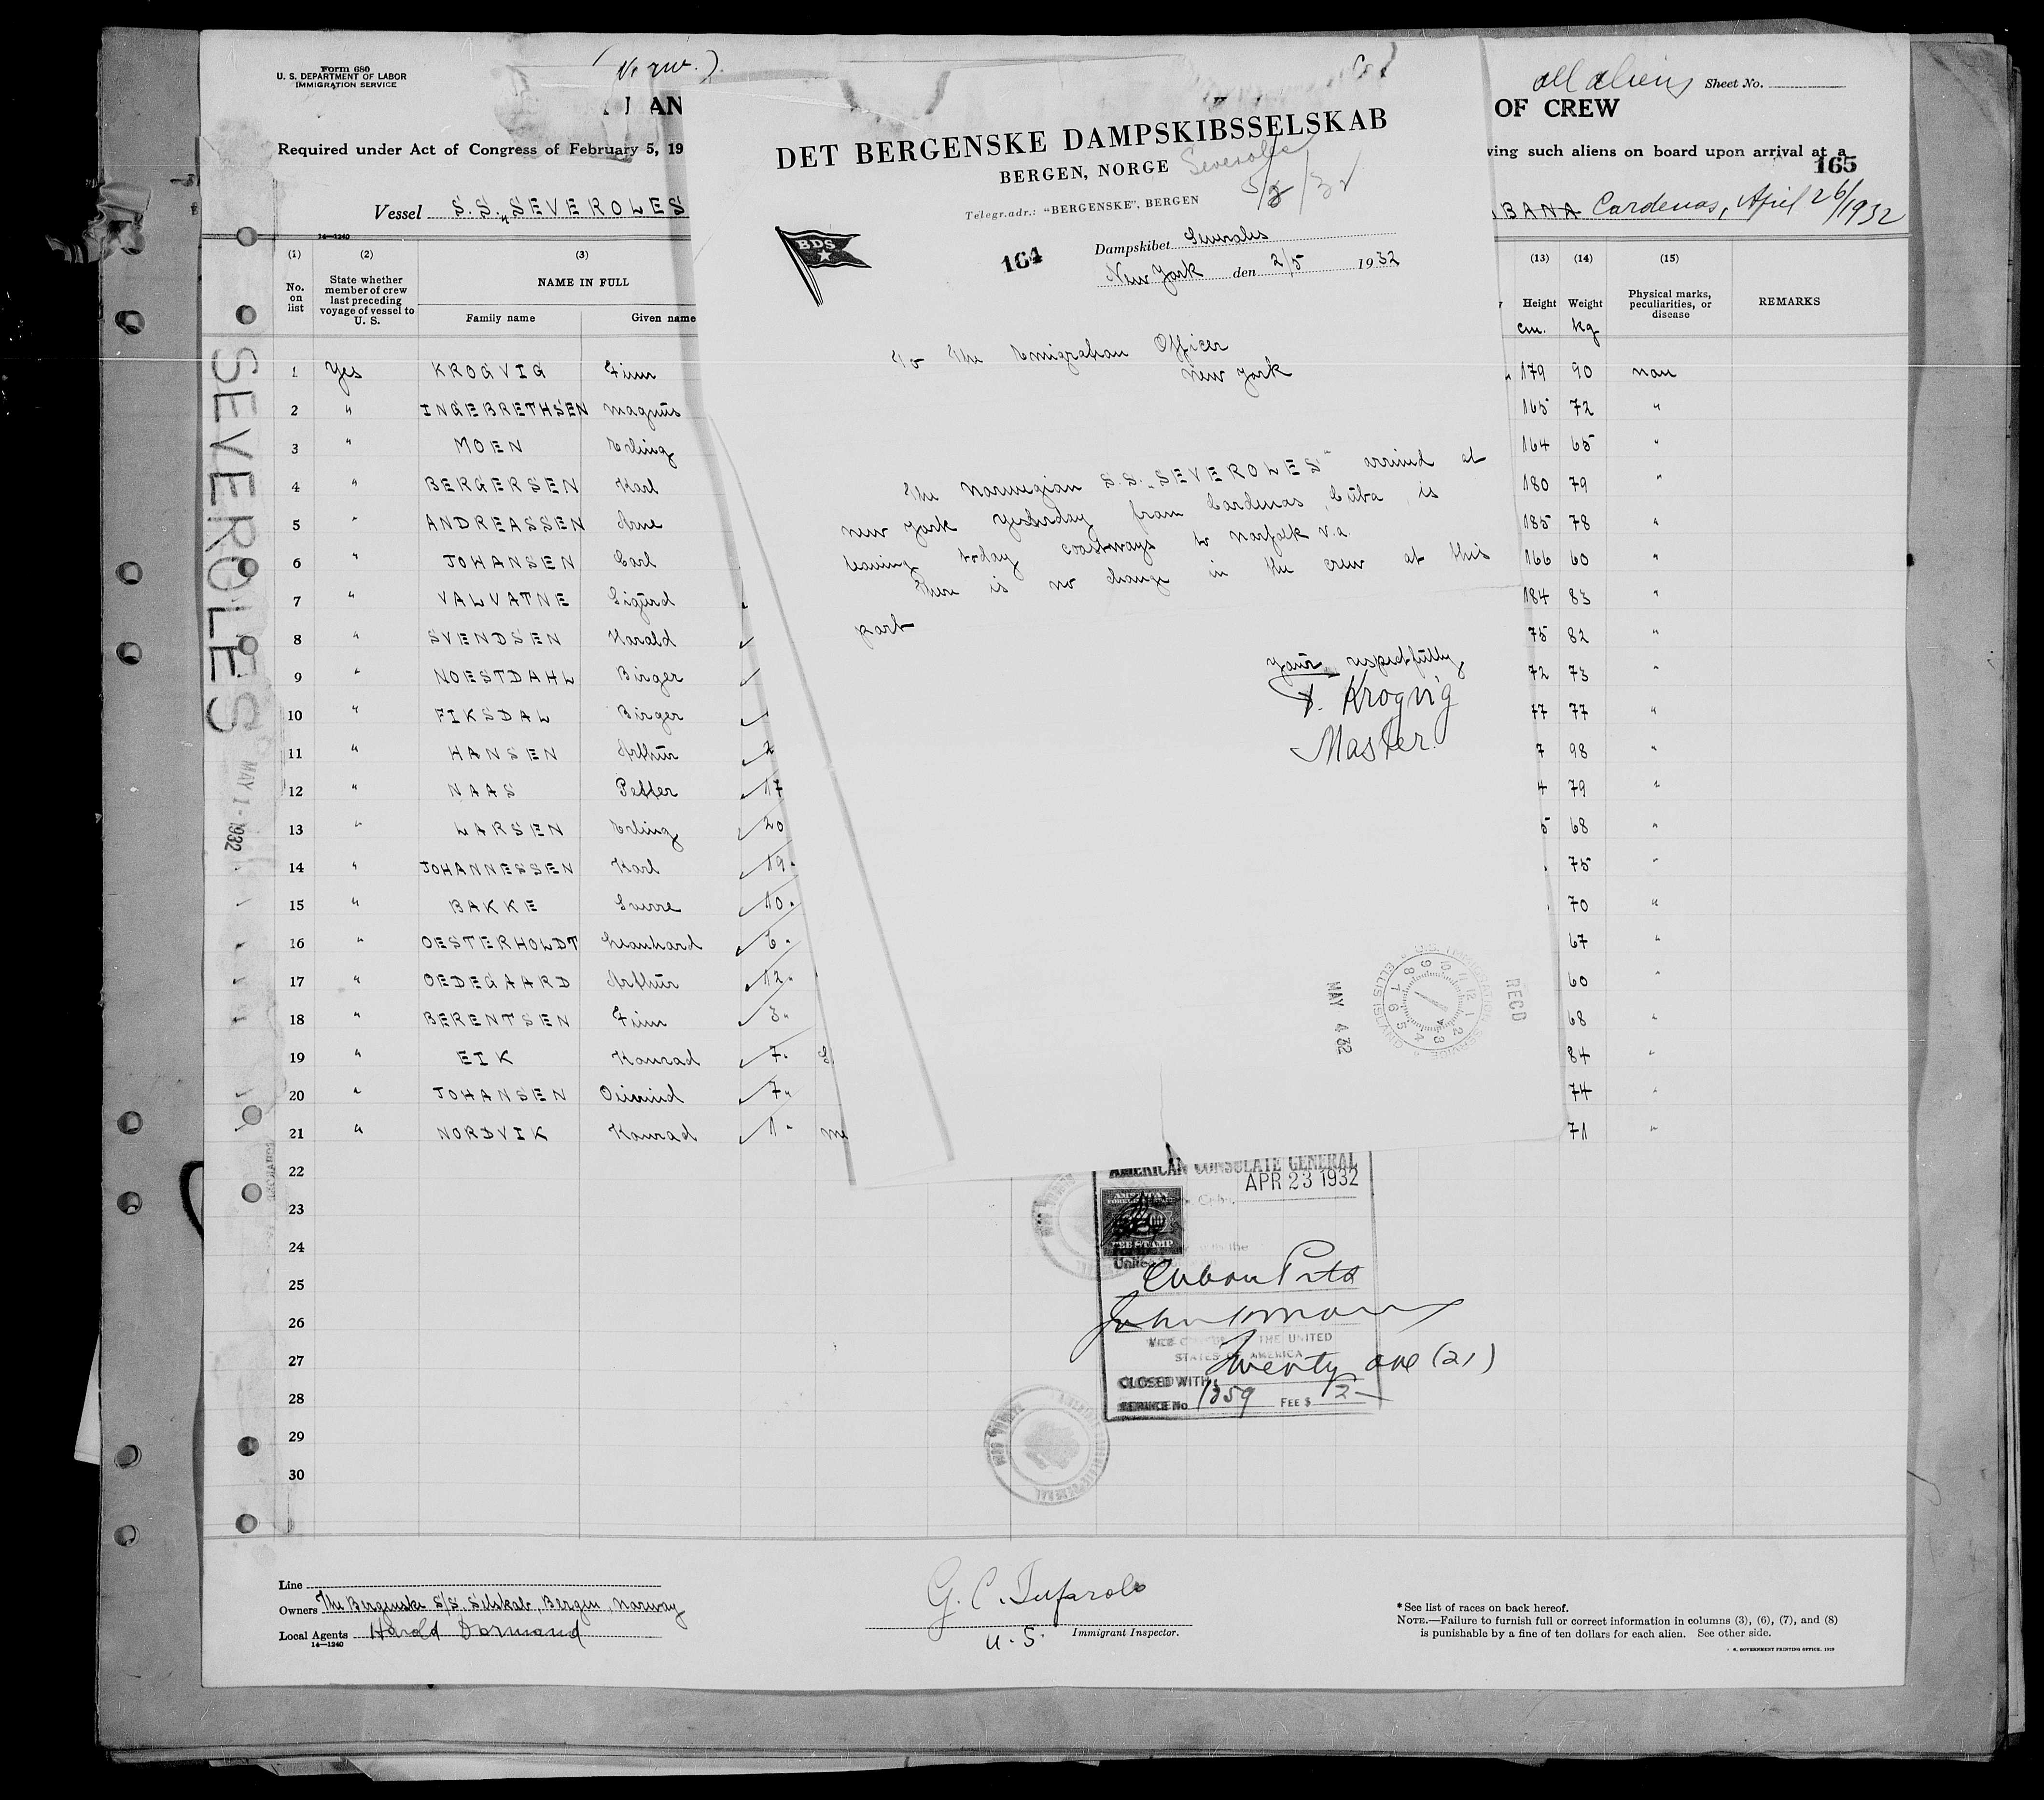 Form 680
U. S. DEPARTMENT OF LABOR
IMMIGRATION SERVICE
all aliens Sheet No.
OF CREW
Required under Act of Congress of February 5, 19
ving such aliens on board upon arrival at a
165
Vessel S.S. „SEVEROLES
BANA Cardenas, April 26/1932
14—1240
(1) (2) (3) (13) (14) (15)
No. on list
State whether member of crew last preceding voyage of vessel to U. S.
NAME IN FULL
Family name Given name
Height Weight Physical marks, peculiarities, or disease REMARKS
cm. kg
1 Yes KROGVIG Finn 179 90 non
2 " INGEBRETHSEN Magnus 165 72 "
3 " MOEN Erling 164 65 "
4 " BERGERSEN Karl 180 79 "
5 " ANDREASSEN Arne 185 78 "
6 " JOHANSEN Carl 166 60 "
7 " VALVATNE Sigurd 184 83 "
8 " SVENDSEN Harald 75 82 "
9 " NOESTDAHL Birger 72 73 "
10 " FIKSDAL Birger 77 77 "
11 " HANSEN Arthur 2 7 98 "
12 " NAAS Petter 17 4 79 "
13 " LARSEN Erling 20 5 68 "
14 " JOHANNESSEN Karl 19 75 "
15 " BAKKE Sverre 10 70 "
16 " OESTERHOLDT Leonhard 6 67 "
17 " OEDEGAARD Arthur 12 60 "
18 " BERENTSEN Finn 3 68 "
19 " EIK Konrad 7 84 "
20 " JOHANSEN Oivind 7 74 "
21 " NORDVIK Konrad 1 71 "
22
23
24
25
26
27
28
29
30
SEVEROLES
MAY 1 - 1932
DET BERGENSKE DAMPSKIBSSELSKAB
BERGEN, NORGE
Severoles
5/2/32
Telegr.adr.: "BERGENSKE", BERGEN
BDS
164
Dampskibet Severoles
New York den 2/5 1932
To The Emigration Officer
New York
The Norwegian S.S. „SEVEROLES" arrived at
New York yesterday from Cardenas, Cuba, is
leaving today coastways to Norfolk v.a.
There is no change in the crew at this
port
Yours respectfully
F. Krogvig
Master.
MAY 4 32
ELLIS ISLAND
RECD
AMERICAN CONSULATE GENERAL
APR 23 1932
FEE STAMP
Cuban Ports
THE UNITED
STATES OF AMERICA
Twenty one (21)
CLOSED WITH
SERVICE No. 1359 FEE $ 2—
Line
Owners The Bergenske S/S. Selskab, Bergen, Norway
Local Agents Harold Dormand
14—1240
U. S. Immigrant Inspector.
* See list of races on back hereof.
NOTE.—Failure to furnish full or correct information in columns (3), (6), (7), and (8)
is punishable by a fine of ten dollars for each alien. See other side.